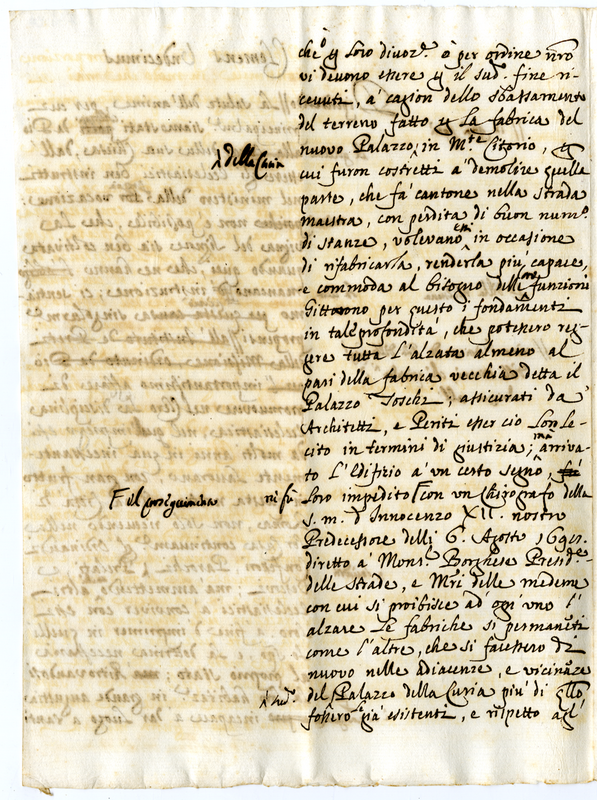 che o p loro divoz.e o per ordine nro
vi devono essere p il sud.o fine ri-
cevuti, a' cagion dello sbassamento
del terreno fatto p La fabrica del
nuovo Palazzo in M.te Citorio, p
della Curia
cui furon costretti a' demolire quella
parte, che fa' cantone nella strada
maestra, con perdita di buon num.o
di stanze, volevano essi in occasione
di rifabricarla, renderla più capace,
e commoda al bisogno delle funzioni
Gittorono per questo i fondamenti
in tale profondità, che potessero reg-
gere tutta l'alzata almeno al
pari della fabrica vecchia detta il
Palazzo Toschi; assicurati da
Architetti, e Periti esser ciò Loro le-
cito in termini di giustizia; ma arriva-
to l'Edifizio a' un certo segno,
F il proseguimento
ne fu
loro impedito F con un chirografo della
s. m. d'Innocenzo XII. nostro
Predecessore delli 6. Agosto 1695.
diretto a' Mons.r Borghese Presid.e
delle strade, e Mri delle medeme
con cui si proibisce ad' ogn'uno l'
alzare Le fabriche si permanenti
come l'altre, che si facessero di
nuovo nelle adiacenze, e vicinanze
del Palazzo della Curia più di qllo
sud.o
fossero già esistenti, e rispetto agl'